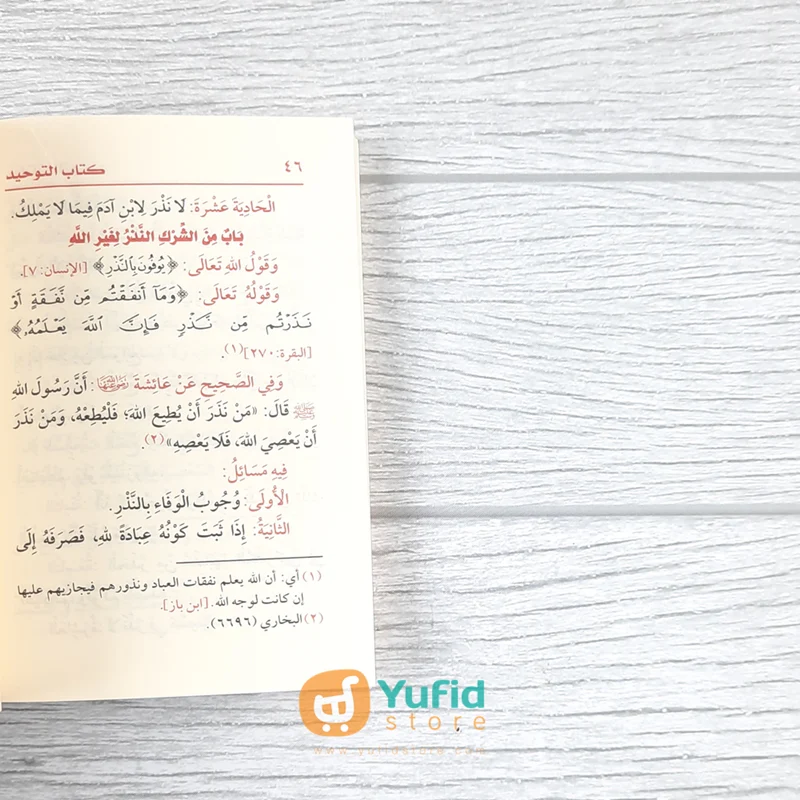 ٤٦ كتاب التوحيد
الْحَادِيَةَ عَشْرَةَ: لَا نَذْرَ لِابْنِ آدَمَ فِيمَا لَا يَمْلِكُ.
بَابٌ مِنَ الشِّرْكِ النَّذْرُ لِغَيْرِ اللَّهِ
وَقَوْلُ اللهِ تَعَالَى: ﴿يُوفُونَ بِالنَّذْرِ﴾ [الإنسان: ٧].
وَقَوْلُهُ تَعَالَى: ﴿وَمَا أَنفَقْتُم مِّن نَّفَقَةٍ أَوْ
نَذَرْتُم مِّن نَّذْرٍ فَإِنَّ اللَّهَ يَعْلَمُهُ﴾
[البقرة: ٢٧٠](١).
وَفِي الصَّحِيحِ عَنْ عَائِشَةَ رضي الله عنها: أَنَّ رَسُولَ اللهِ
ﷺ قَالَ: «مَنْ نَذَرَ أَنْ يُطِيعَ اللهَ؛ فَلْيُطِعْهُ، وَمَنْ نَذَرَ
أَنْ يَعْصِيَ اللهَ، فَلَا يَعْصِهِ»(٢).
فِيهِ مَسَائِلُ:
الْأُولَى: وُجُوبُ الْوَفَاءِ بِالنَّذْرِ.
الثَّانِيَةُ: إِذَا ثَبَتَ كَوْنُهُ عِبَادَةً لِلهِ، فَصَرْفُهُ إِلَى
(١) أي: أن الله يعلم نفقات العباد ونذورهم فيجازيهم عليها
إن كانت لوجه الله. [ابن باز].
(٢) البخاري (٦٦٩٦).
Yufid
store
www.yufidstore.com